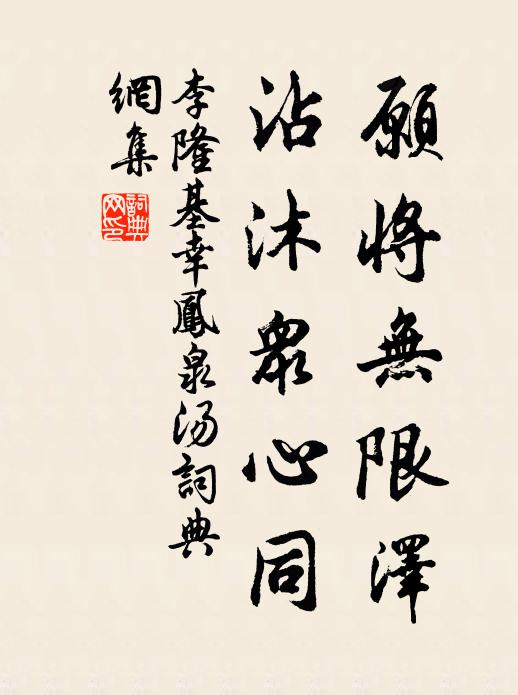 願將無限澤
沾沐衆心同
李隆基幸鳳泉湯詞典
網集
詞典
网印